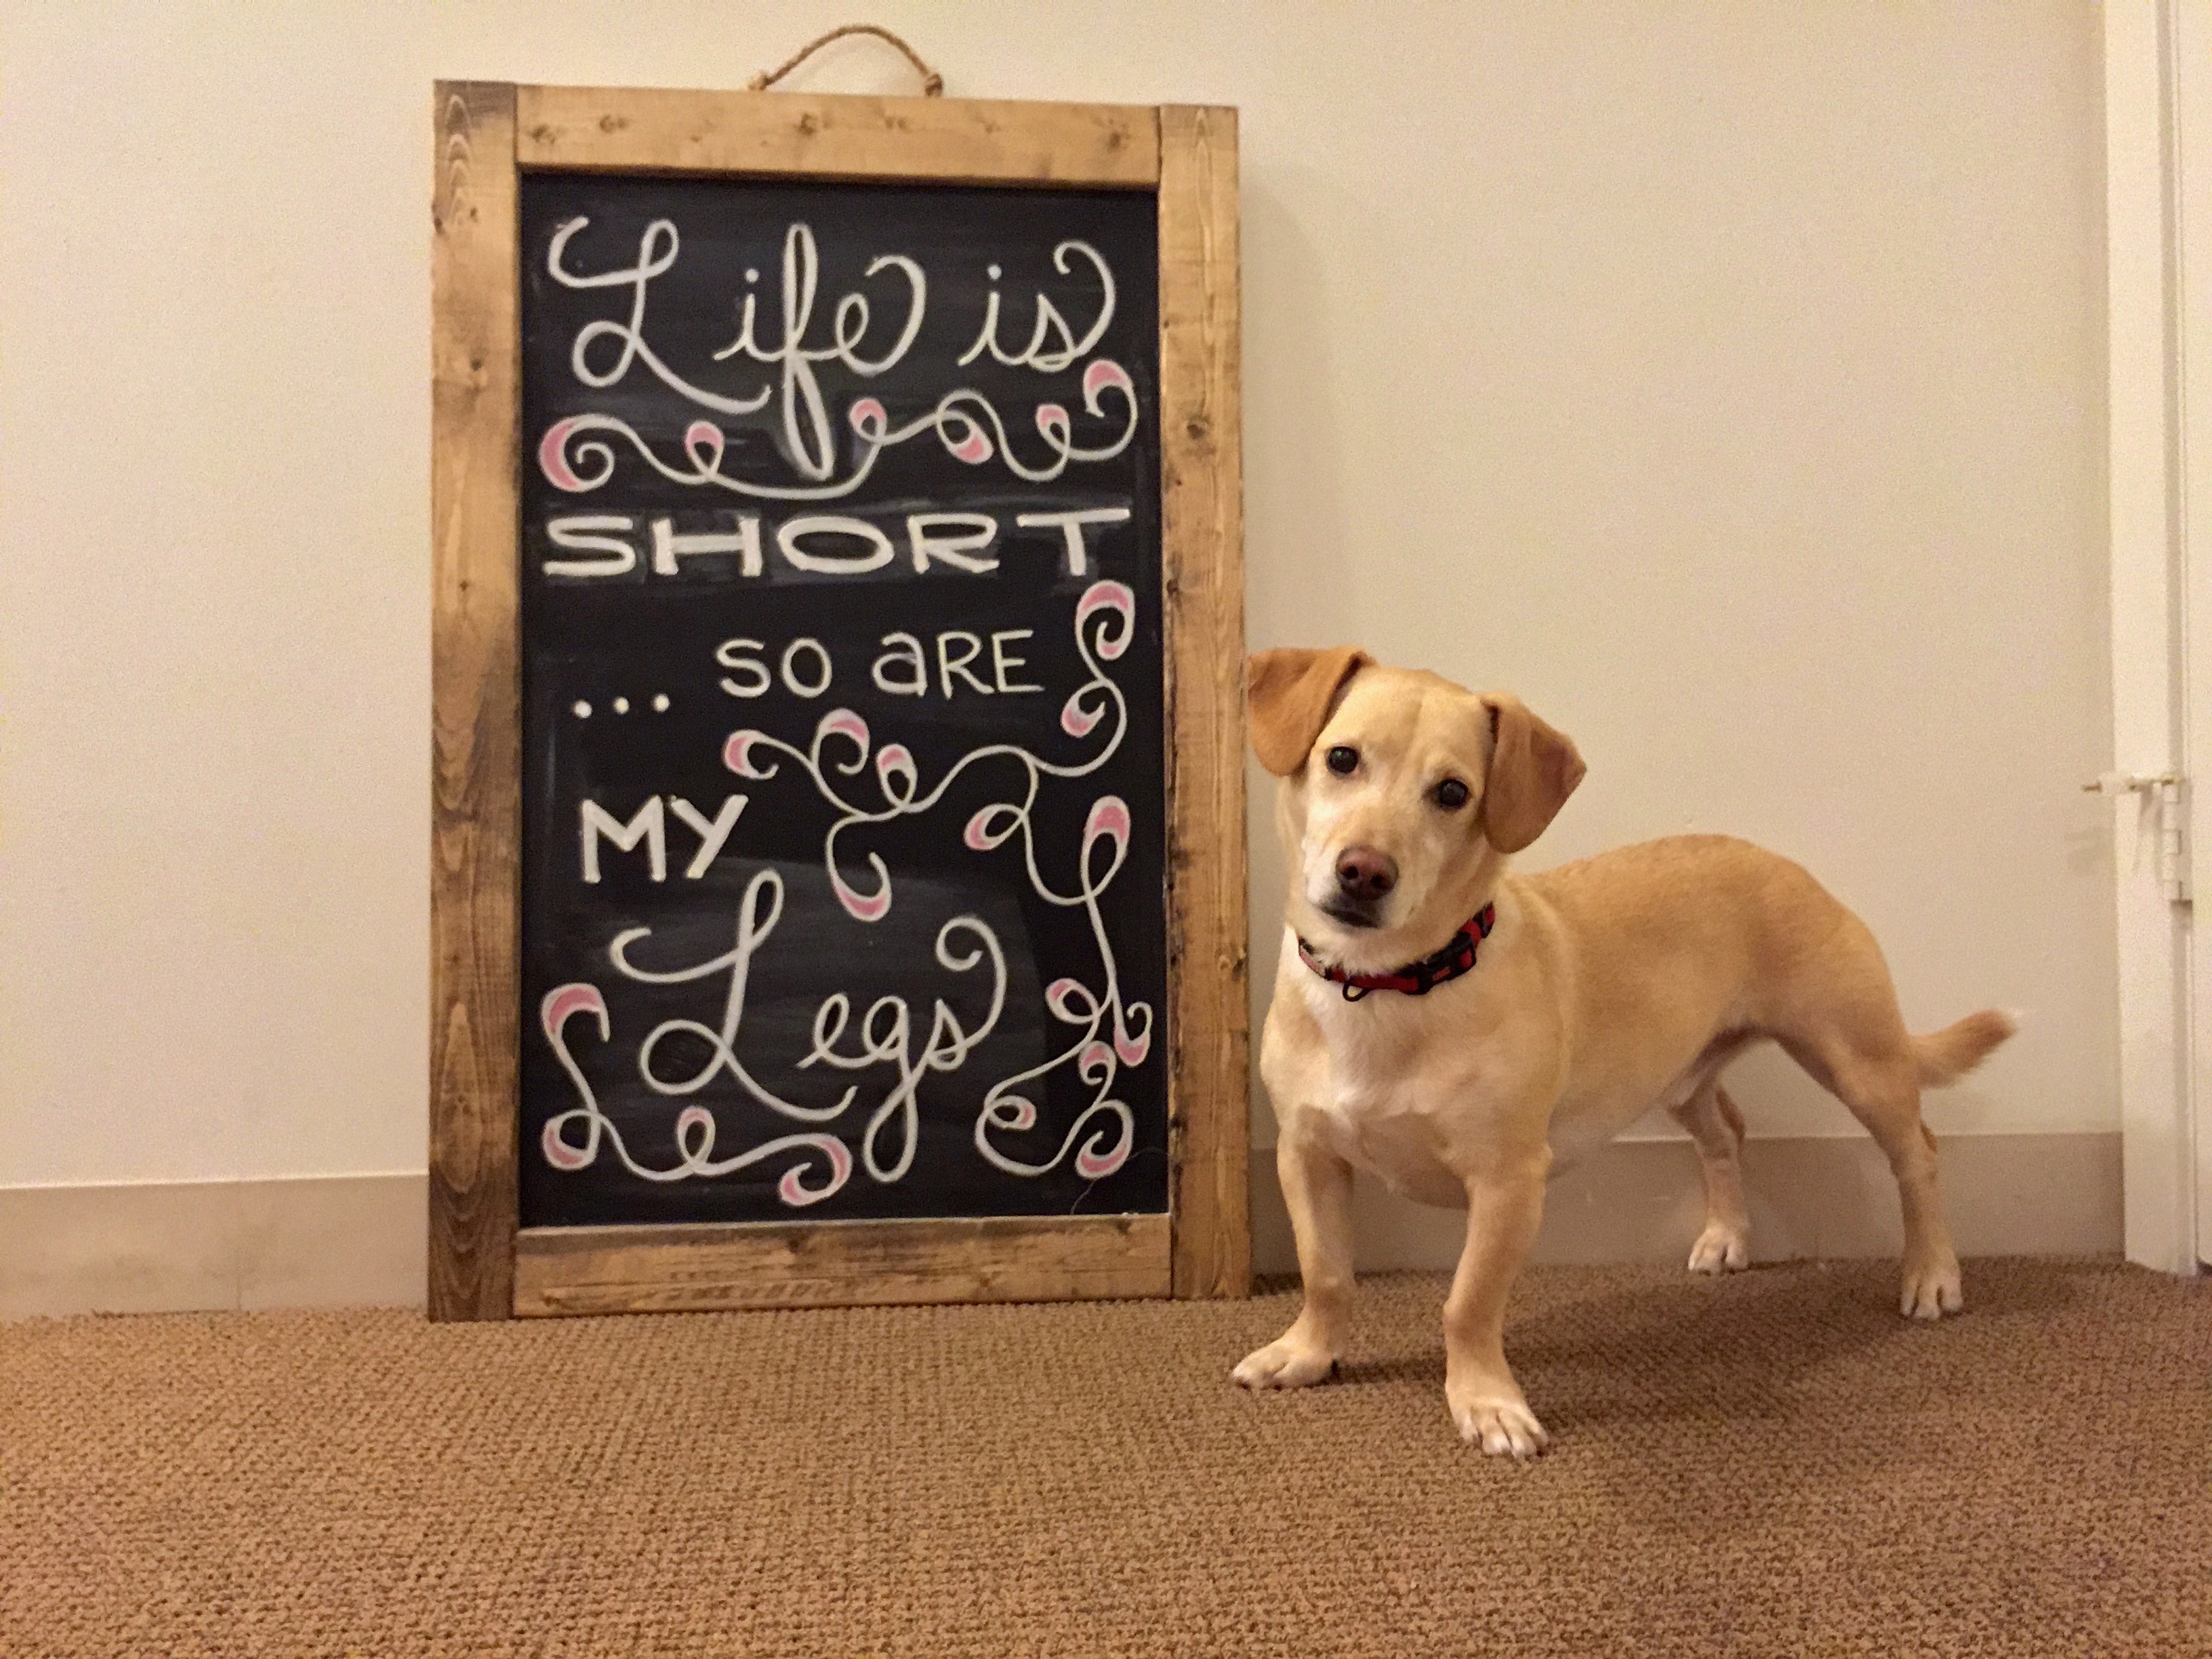 Life is
SHORT
... so aRE
MY
Legs